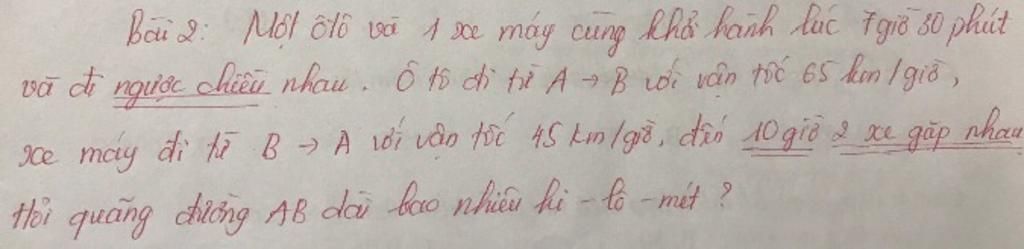 Bài 2: Một ôtô và 1 xe máy cùng khởi hành lúc 7 giờ 30 phút
và đi ngược chiều nhau. Ô tô đi từ A → B với vận tốc 65 km/giờ,
xe máy đi từ B → A với vận tốc 45 km/giờ, đến 10 giờ 2 xe gặp nhau
Hỏi quãng đường AB dài bao nhiêu ki - lô - mét ?